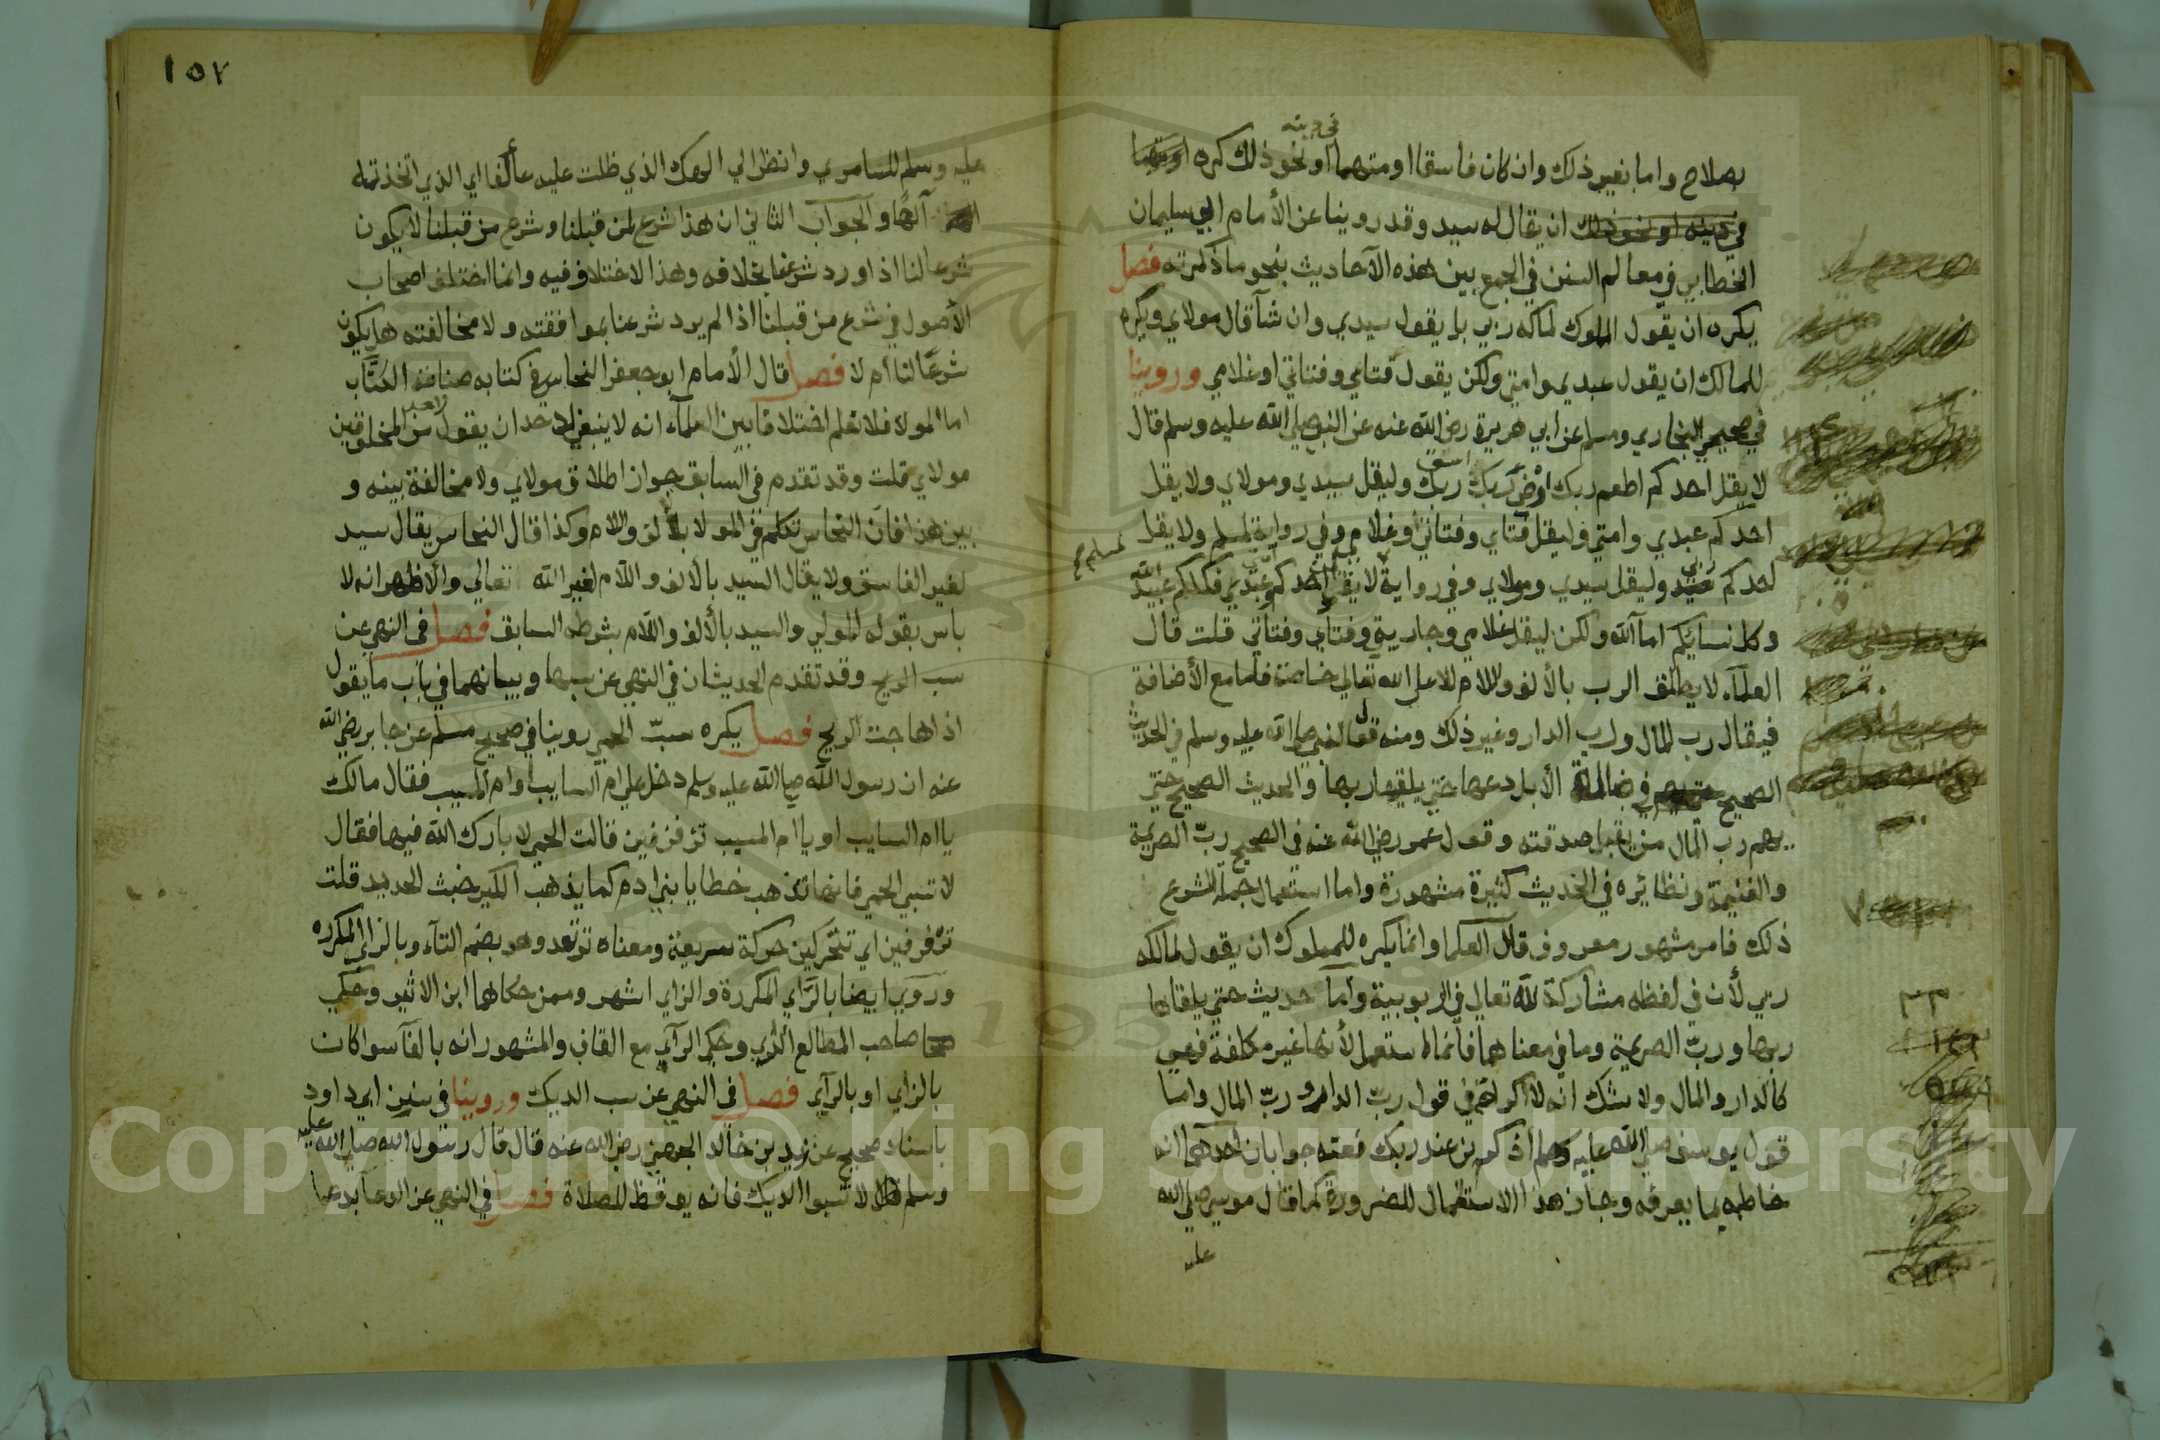 بصلاح واما بغير ذلك وان كان فاسقا او متهما في دينه او نحو ذلك كره
ان يقال له سيد وقد روينا عن الأمام ابي سليمان
الخطابي في معالم السنن في الجمع بين هذه الآحاديث بنحو ما ذكرته فصل
يكره ان يقول المملوك لمالكه ربي بل يقول سيدي وان شآ قال مولاي ويكره
للمالك ان يقول عبدي وامتي ولكن يقول فتاي وفتاتي او غلامي وروينا
في صحيحي البخاري ومسلم عن ابي هريرة رضي الله عنه عن النبي صلي الله عليه وسلم قال
لا يقل احدكم اطعم ربك وض ربك اسق ربك وليقل سيدي ومولاي ولا يقل
احدكم عبدي وامتي وليقل فتاي وفتاتي وغلامي وفي رواية لمسلم ولا يقل
احدكم ربي وليقل سيدي ومولاي وفي رواية لا يقولن احدكم عبدي فكلكم عبيد
وكل نسايكم امآ الله ولكن ليقل غلامي وجاريتي وفتاي وفتاتي قلت قال
العلمآء لا يطلق الرب بالألف واللام الا على الله تعالي خاصة فاما مع الأضافة
فيقال رب المال ورب الدار وغير ذلك ومنه قول النبي صلي الله عليه وسلم في الحديث
الصحيح في ضالة الأبل دعها حتي يلقاها ربها والحديث الصحيح حتي
يهم رب المال من يقبل صدقته وقول عمر رضي الله عنه في الصحيح ربّ الصريمة
والغنيمة ونظائره في الحديث كثيرة مشهورة واما استعمال حملة الشرع
ذلك فامر مشهور معروف قال العلما وانما يكره للمملوك ان يقول لمالكه
ربي لأن في لفظه مشاركة لله تعالي في الربوبية وآما حديث حتي يلقاها
ربها وربّ الصريمة وما في معناهما فانما استعمل لأنها غير مكلفة فهي
كالدار والمال ولا شك انه لا كراهة في قول ربّ الدار وربّ المال واما
قول يوسف صلي الله عليه وسلم اذكرني عند ربك فعنه جوابان احدهما انه
خاطبه بما يعرفه وجاز هذا الاستعمال للضرورة كما قال موسي صلي الله
عليه
١٥٧
عليه وسلم للسامري وانظر الي الهك الذي ظلت عليه عاكفا اي الذي اتخذته
آلهًا والجواب الثاني ان هذا شرع لمن قبلنا وشرع من قبلنا لا يكون
شرعا لنا اذا ورد شرعنا بخلافه وهذا لا اختلاف فيه وانما اختلف اصحاب
الأصول في شرع من قبلنا اذا لم يرد شرعنا بموافقته ولا مخالفته هل يكون
شرعًا لنا أم لا فصل قال الأمام ابو جعفر النحاس في كتابه صناعة الكتَّاب
اما المولا فلا نعلم اختلافا بين العلمآء انه لا ينبغي لاحد ان يقول لاحد من المخلوقين
مولاي قلت وقد تقدم في السابق جواز اطلاق مولاي ولا مخالفة بينه و
بين هذا فان النحاس تكلم في المولا بالألف واللام وكذا قال النحاس يقال سيد
لغير الفاسق ولا يقال السيد بالألف واللام لغير الله تعالي والأظهر انه لا
باس بقوله المولي والسيد بالألف واللام بشرطه السابق فصل في النهي عن
سب الريح وقد تقدم الحديثان في النهي عن سبها وبيانهما في باب ما يقول
اذا هاجت الريح فصل يكره سبّ الحمى روينا في صحيح مسلم عن جابر رضي الله
عنه ان رسول الله صلي الله عليه وسلم دخل على ام السايب او ام المسيب فقال مالك
يا ام السايب او يا ام المسيب تزفزفين قالت الحمى لا بارك الله فيها فقال
لا تسبي الحمى فانها تذهب خطايا بني ادم كما يذهب الكير خبث الحديد قلت
تزفزفين اي تتحركين حركة سريعة ومعناه ترتعد وهو بضم التآء وبالزاي المكرره
وروي ايضا بالرآي المكررة والزاي اشهر وممن حكاهما ابن الاثير وحكي
صاحب المطالع الزاي وحكي الرآي مع القاف والمشهور انه بالفآ سوا كان
بالزاي او بالرآي فصل في النهي عن سب الديك وروينا في سنن ابي داود
باسناد صحيح عن زيد بن خالد الجهني رضي الله عنه قال قال رسول الله صلي الله عليه
وسلم لا تسبوا الديك فانه يوقظ للصلاة فصل في النهي عن الدعآ بدعا
Copyright © King Saud University